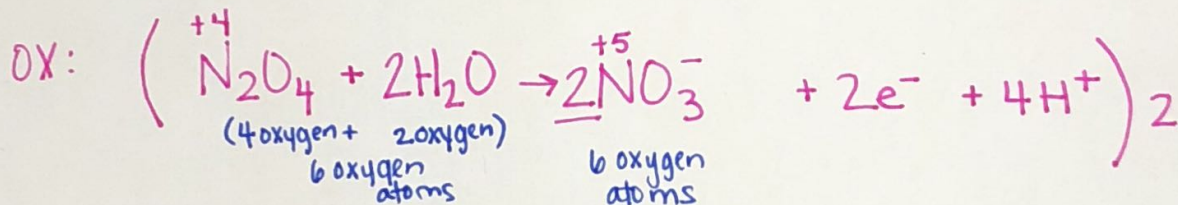 +4 +5
OX: ( N₂O₄ + 2H₂O → 2NO₃⁻ + 2e⁻ + 4H⁺ ) 2
(4 oxygen + 2 oxygen)
6 oxygen atoms 6 oxygen atoms